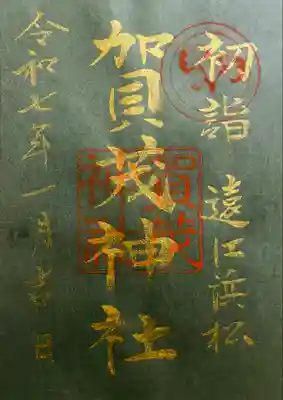 初詣 遠江浜松
賀茂神社
令和七年一月吉日